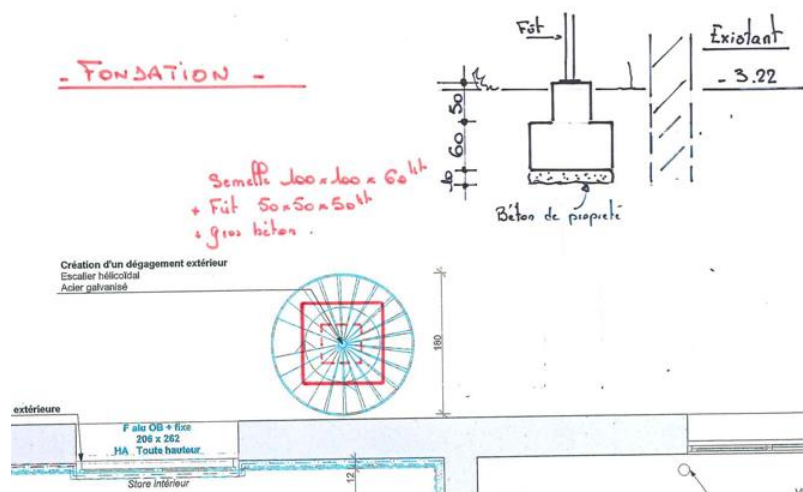 - FONDATION -
Fût
Existant
- 3.22
50
60
10
Semelle 100 x 100 x 60 ht
+ Fût 50 x 50 x 50 ht
+ gros béton.
Béton de propreté
Création d'un dégagement extérieur
Escalier hélicoïdal
Acier galvanisé
180
extérieure
F alu OB + fixe
206 x 262
HA Toute hauteur
Store Intérieur
12